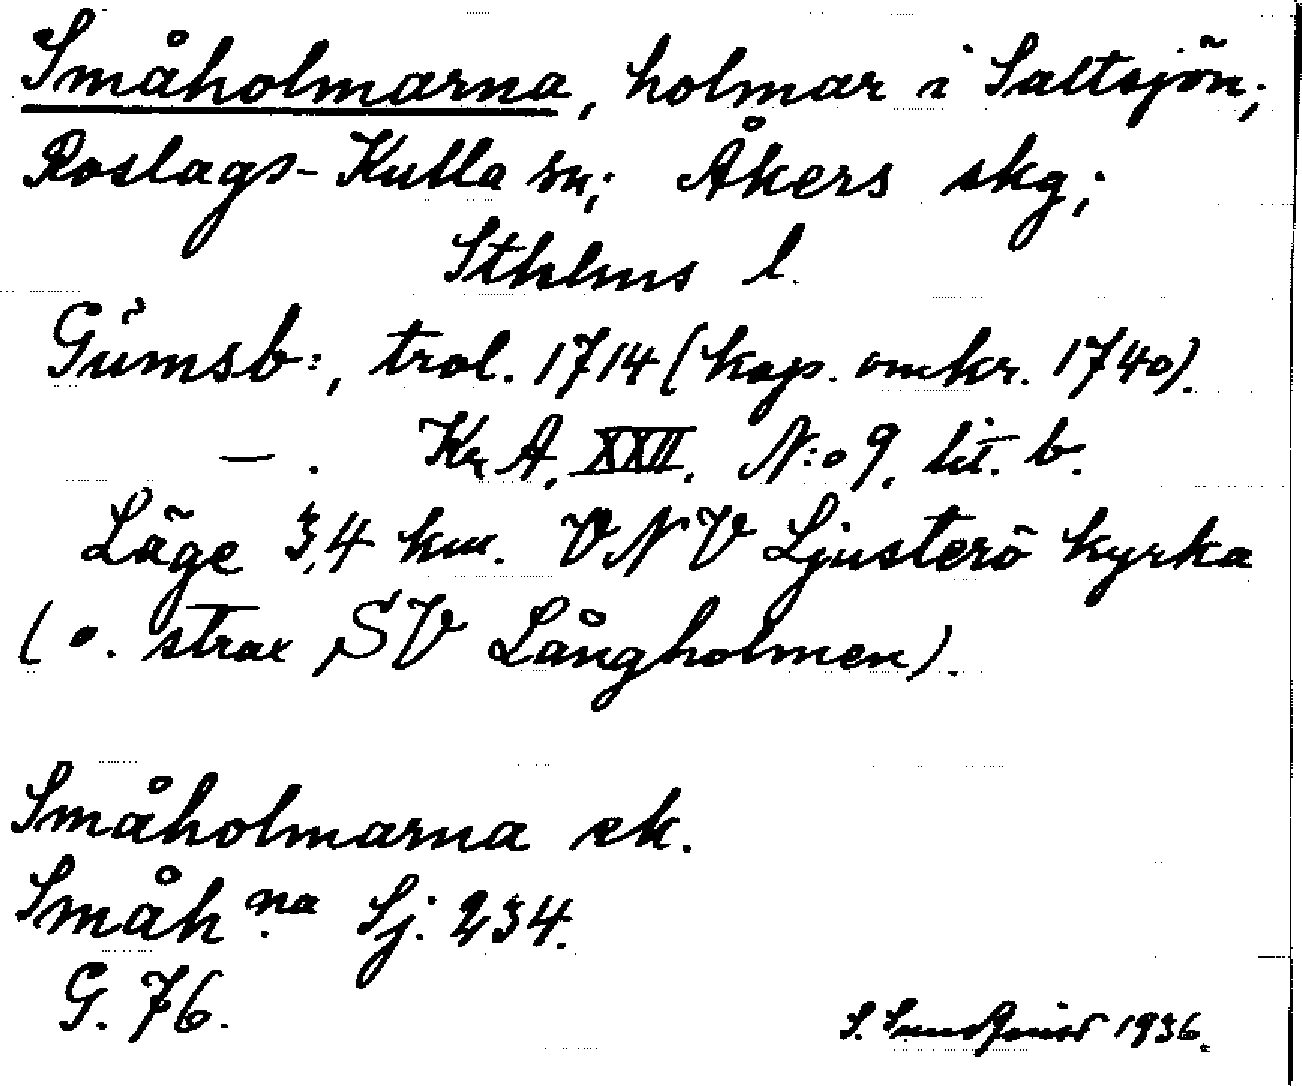 Småholmarna, holmar i Saltsjön;
Roslags-Kulla sn; Åkers skg;
Sthlms l.
Gumsb:, trol. 1714 (kop. omkr. 1740).
— . Kr. A. XXII. N:o 9. lit. b.
Läge 3,4 km. VNV Ljusterö kyrka
(o. strax SV Långholmen).
Småholmarna ek.
Småh na Sj. 234.
G. 76.
S. 1936.